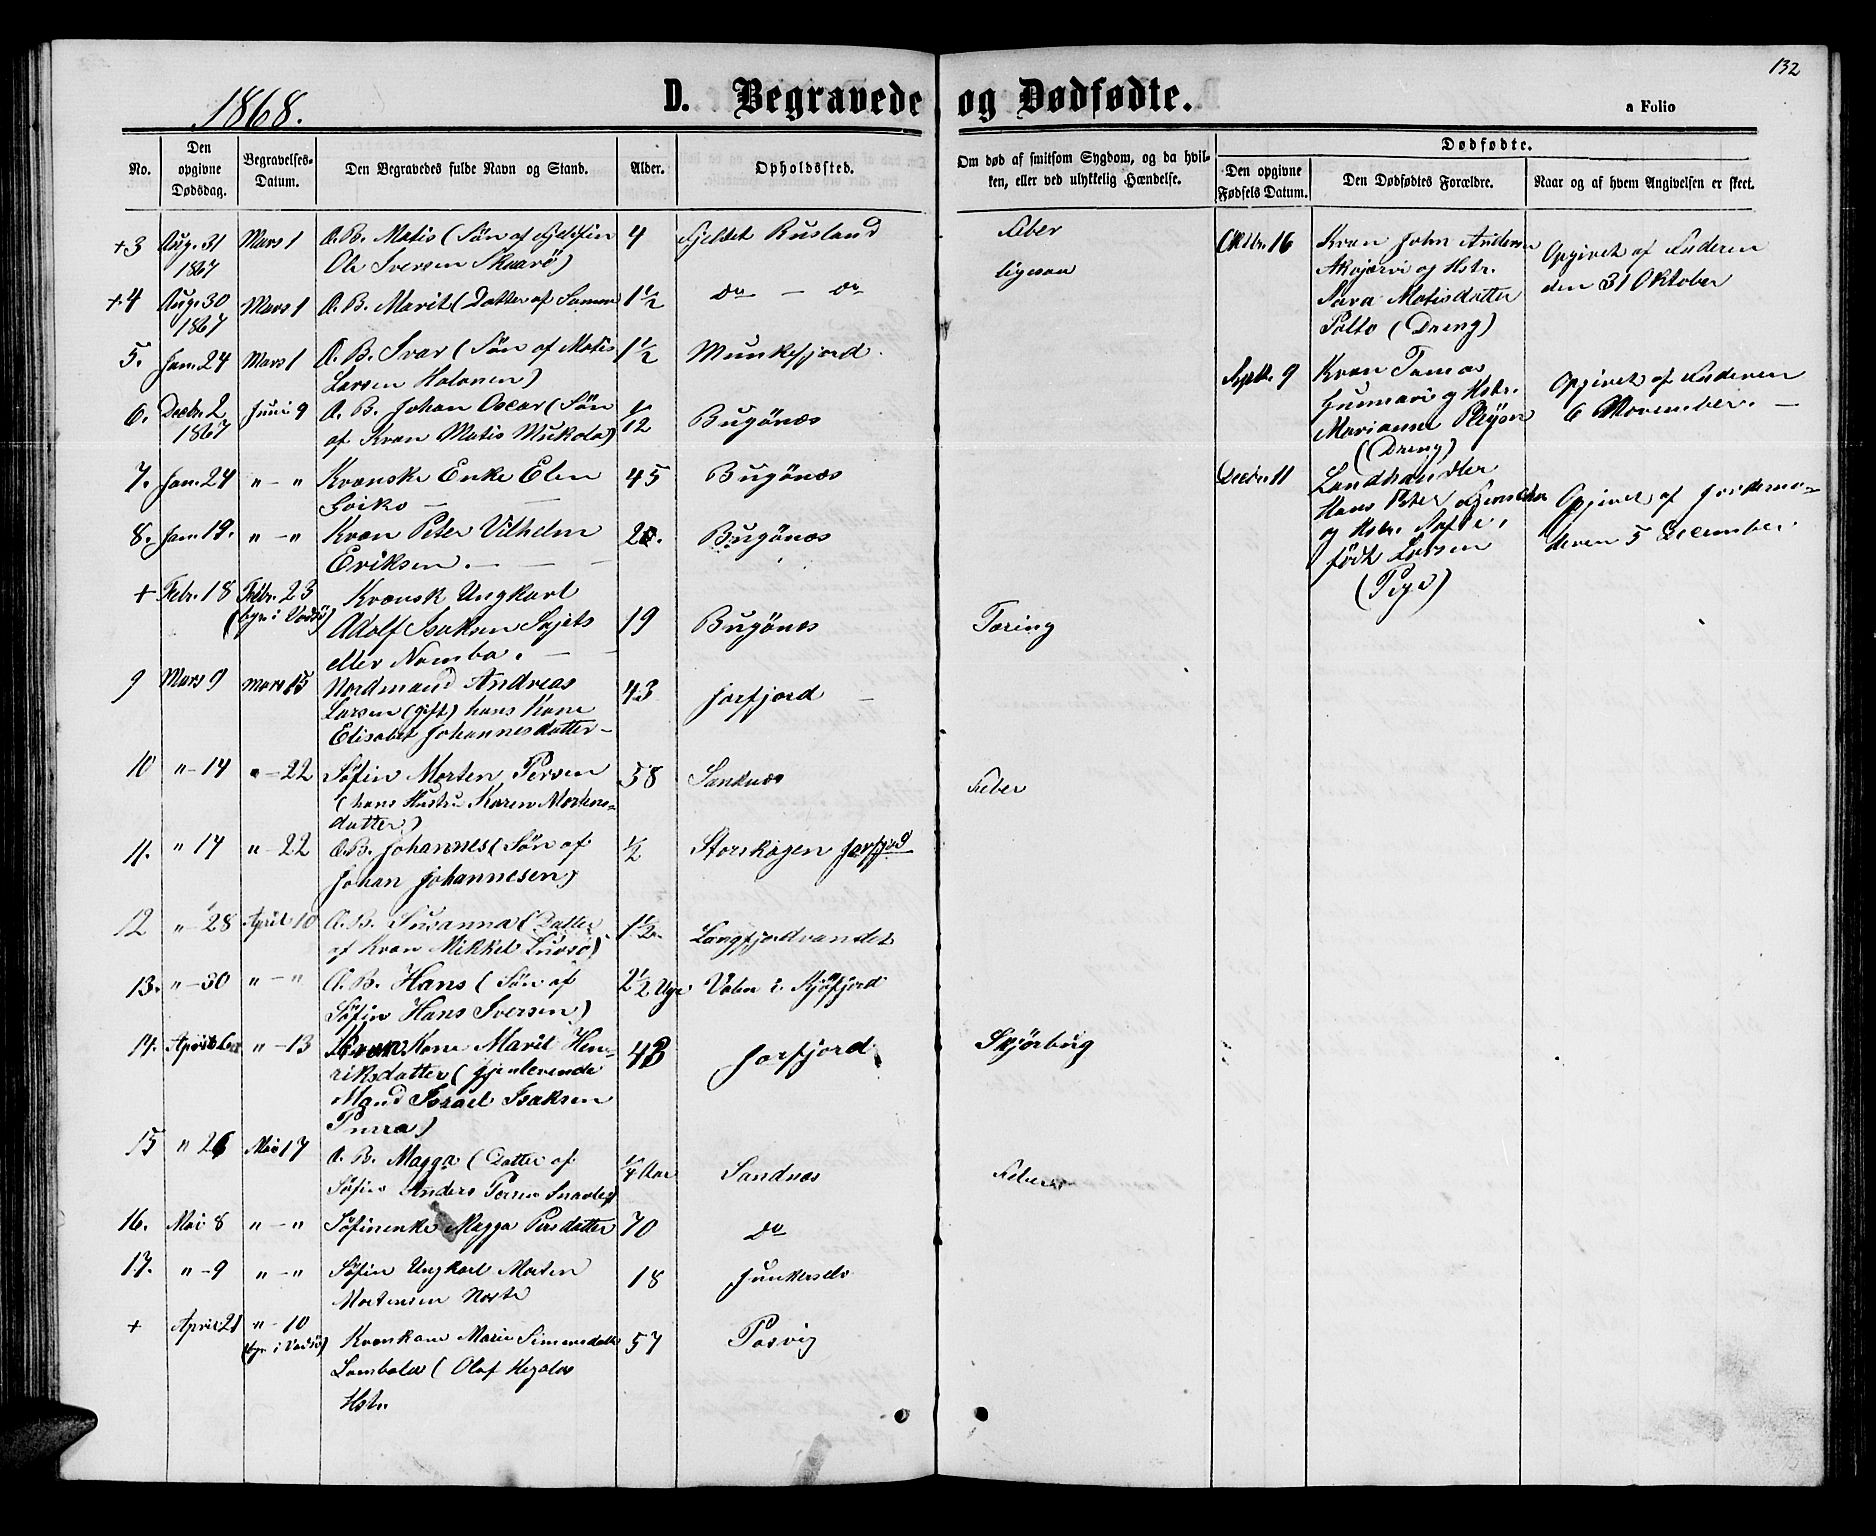 132
1868.
D. Begravede og Dødfødte.
a Folio
No.
Den opgivne Dødsdag.
Begravelses-Datum.
Den Begravedes fulde Navn og Stand.
Alder.
Opholdssted.
Om død af smitsom Sygdom, og da hvil-
ken, eller ved ulykkelig Hændelse.
Dødfødte.
Den opgivne Fødsels Datum.
Den Dødfødtes Forældre.
Naar og af hvem Angivelsen er skeet.
+3 Aug. 31 Mars 1 A. B. Matis (Søn af Fjeldfin 4 Fjeldet Rusland Feber
1867 Ole Iversen Skaarø)
+4 Aug. 30 Mars 1 A. B. Marit (Datter af Samme 1 1/2 do - do ligesaa
1867
5. Jan. 24 Mars 1 A. B. Ivar (Søn af Matis 1 1/2 Munkefjord.
Larsen Halonen)
6. Decbr. 2 Juni 9 A. B. Johan Oscar (Søn 1/12 Bugønæs
1867 af Kvæn Matis Mukola)
7. Jan. 24 " - " Kvænske Enke Elen 45 Bugønæs
Goiko -
8. Jan. 19. " - " Kvæn Peter Vilhelm 20. Bugønæs
Eriksen. -
+ Febr. 18 Febr. 23 Kvænsk Ungkarl
(begr. i Vadsø) Adolf Isaksen Sajets 19 Bugønes Tæring
eller Nomba. -
9 Mars 9 Mars 15 Nordmand Andreas 43 Jarfjord -
Larsen (gift) hans Kone
Elisabet Johannesdatter -
10 " - 14 " - 22 Søfin Morten Persen 58 Sandnæs Feber
(hans Hustru Karen Mortens-
datter)
11. " 14 " - 22 A. B. Johannes (Søn af 1/2 Storskogen Jarfjord
Johan Johannesen)
12 " - 28 April 10 A. B. Susanna (Datter 1 1/2. Langfjordvandet
af Kvæn Mikkel)
13. " - 30 " - " A. B. Hans (Søn af 2 1/2 Uge Valen i Kjøfjord
Søfin Hans Iversen)
14. April " - 13 Kvæn Kone Marit Hen- 43 Jarfjord Skjørbug
riksdatter (gjenlevende
Mand Israel Isaksen
15 " 26 Mai 17 A. B. Magga (Datter af 1/4 Aar Sandnæs Feber
Søfin Anders Persen
16. Mai 8 " - " Søfinenke Magga Persdatter 70 do
17. " - 9 " - " Søfin Ungkarl Morten 18 Junkerselv
Mortensen Noste
+ April 21 " - 10 Kvænkone Marie Simonsdatter 57 Pasvig
(begr. i Vadsø) Lambala (Olaf
Hstr.
Oktbr. 16 Kvæn John Andersen Opgivet af Faderen
Akojærvi og Hstr. den 31 Oktober
Sara Matisdatter
Palto (Dreng)
Septbr. 9 Kvæn Tomas Opgivet af Faderen
Gunnari og Hstr. 6 November. -
Marianne
(Dreng)
Decbr. 11 Landhandler
Hans Peter Opgivet af Jordemo-
og Hstr. Sofie, deren 5 December.
født Larsen
(Pige)